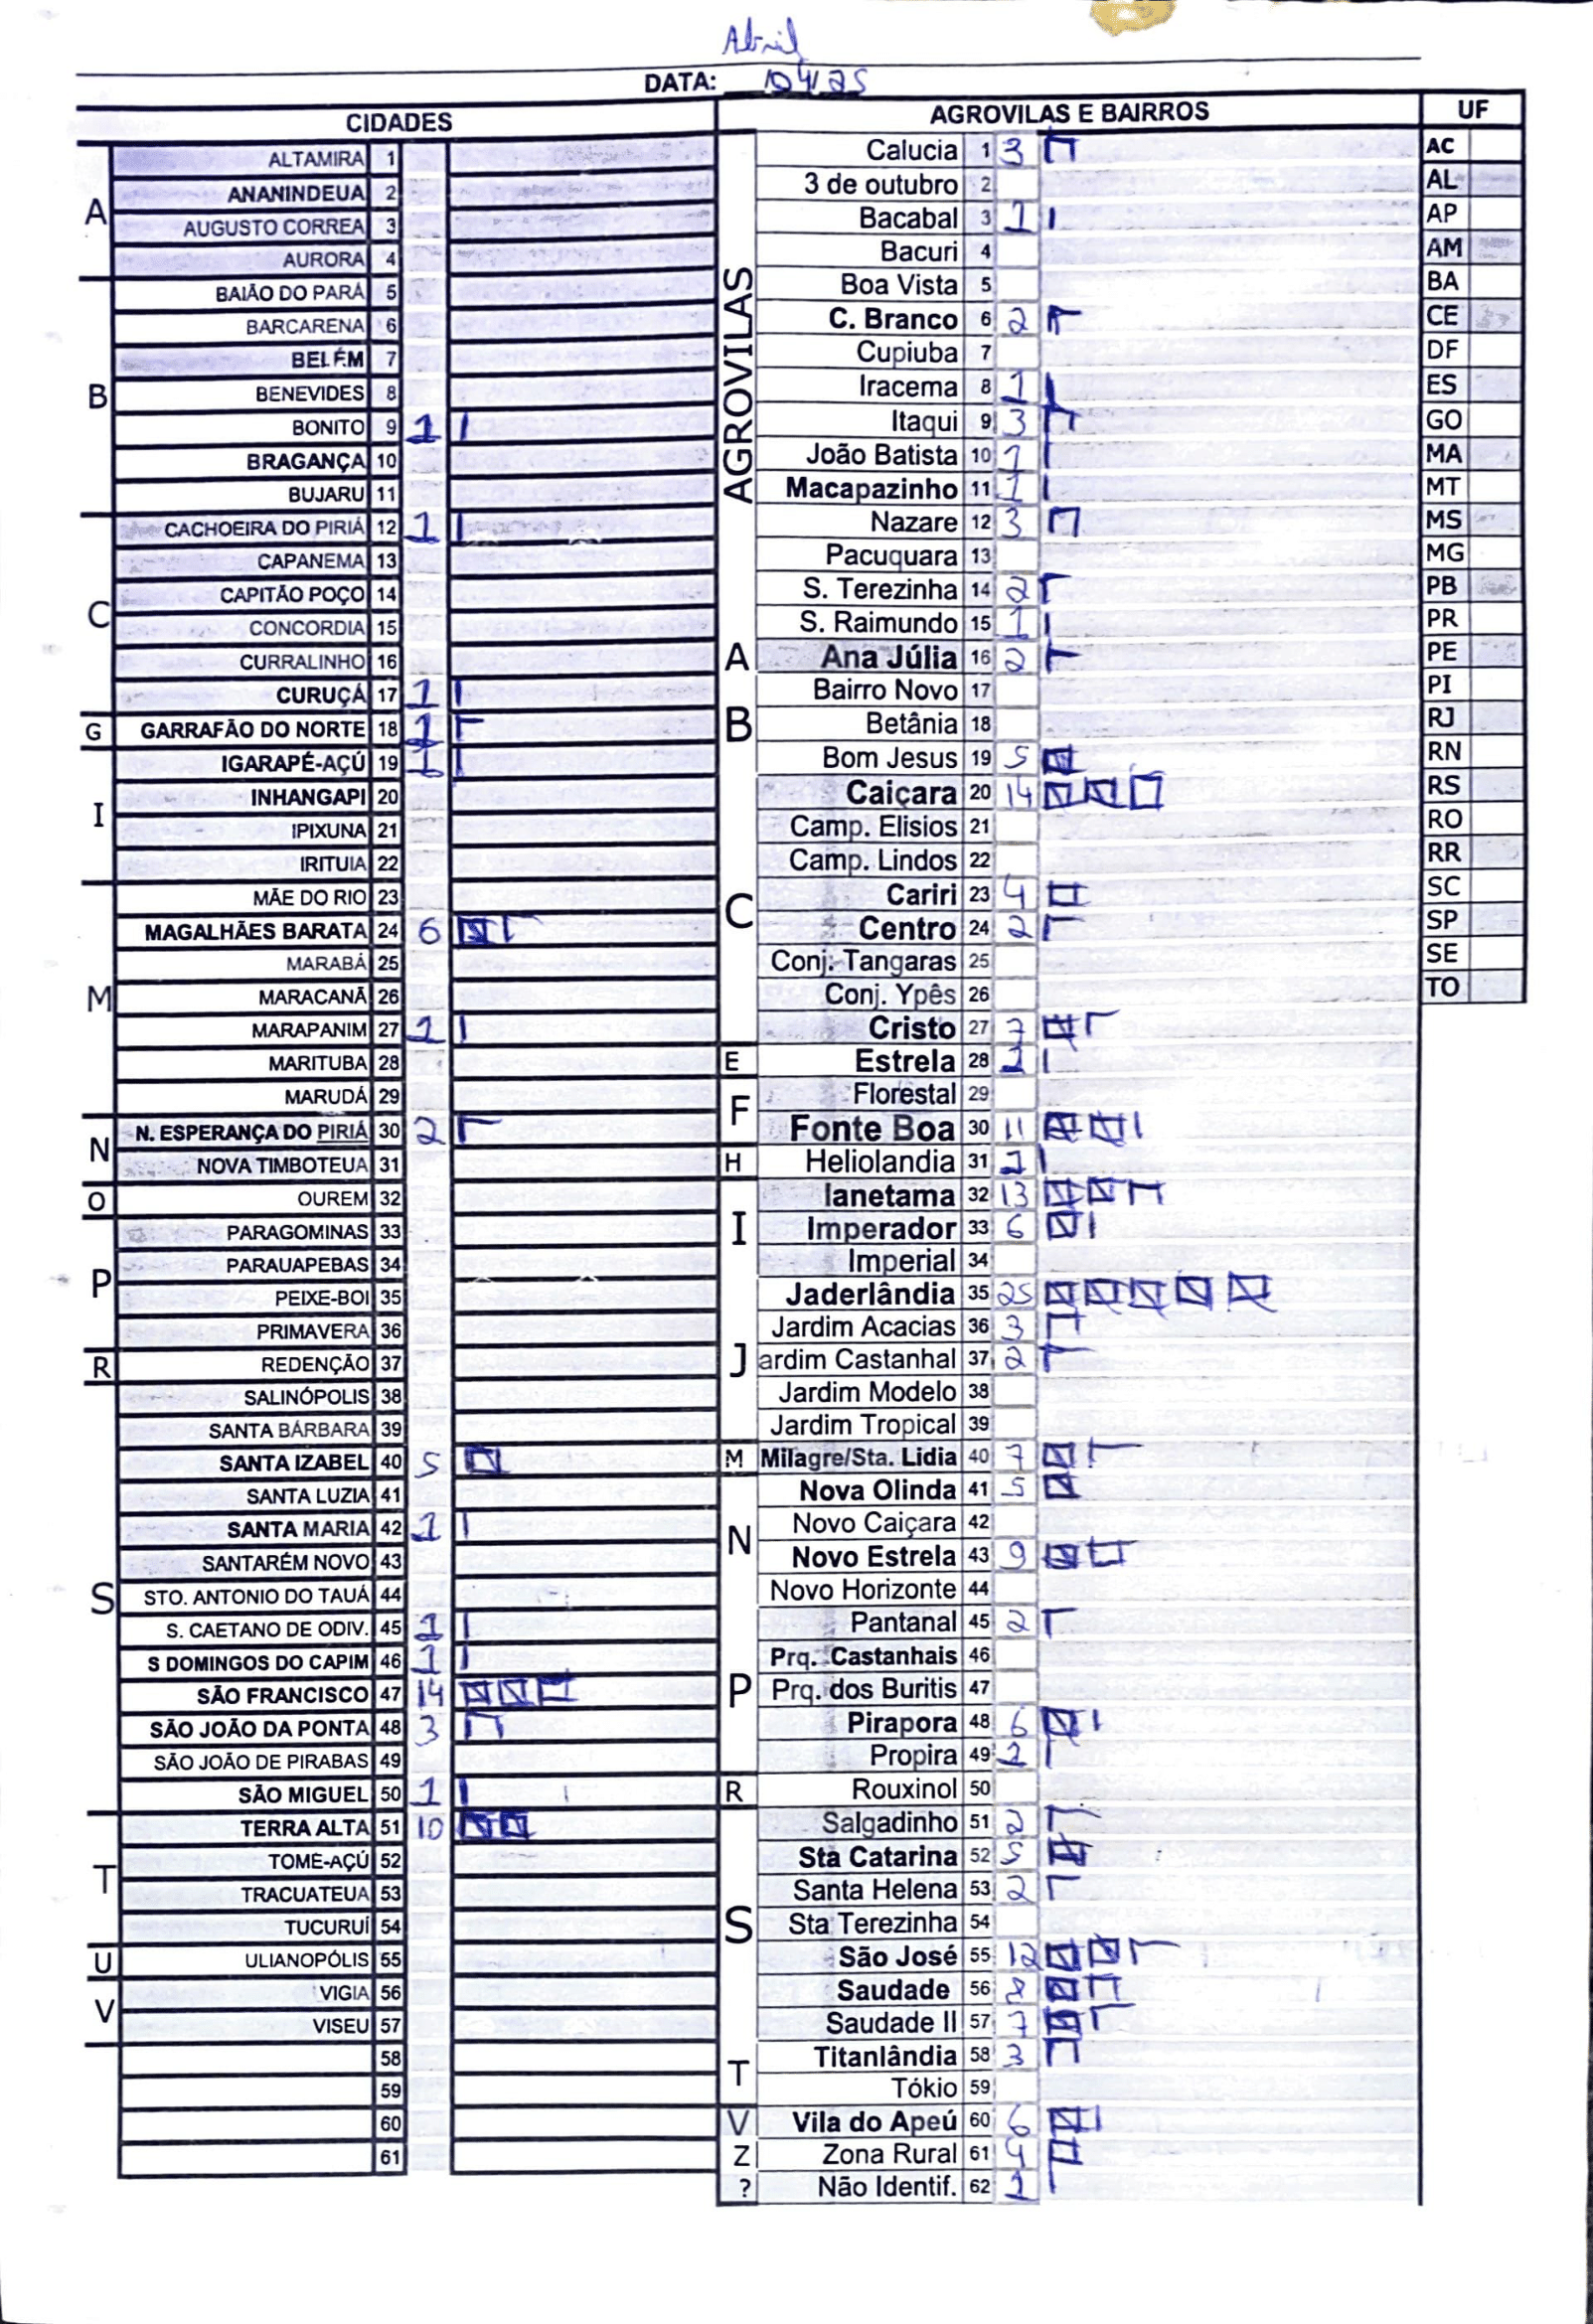 Abril
DATA: 04/25
CIDADES
A
ALTAMIRA 1
ANANINDEUA 2
AUGUSTO CORREA 3
AURORA 4
B
BAIÃO DO PARÁ 5
BARCARENA 6
BELÉM 7
BENEVIDES 8
BONITO 9 1
BRAGANÇA 10
BUJARU 11
C
CACHOEIRA DO PIRIÁ 12 1
CAPANEMA 13
CAPITÃO POÇO 14
CONCORDIA 15
CURRALINHO 16
CURUÇÁ 17 1
G
GARRAFÃO DO NORTE 18 1
I
IGARAPÉ-AÇÚ 19 1
INHANGAPI 20
IPIXUNA 21
IRITUIA 22
M
MÃE DO RIO 23
MAGALHÃES BARATA 24 6
MARABÁ 25
MARACANÃ 26
MARAPANIM 27 1
MARITUBA 28
MARUDÁ 29
N
N. ESPERANÇA DO PIRIÁ 30 2
NOVA TIMBOTEUA 31
O
OUREM 32
P
PARAGOMINAS 33
PARAUAPEBAS 34
PEIXE-BOI 35
PRIMAVERA 36
R
REDENÇÃO 37
S
SALINÓPOLIS 38
SANTA BÁRBARA 39
SANTA IZABEL 40 5
SANTA LUZIA 41
SANTA MARIA 42 1
SANTARÉM NOVO 43
STO. ANTONIO DO TAUÁ 44
S. CAETANO DE ODIV. 45 1
S DOMINGOS DO CAPIM 46 1
SÃO FRANCISCO 47 14
SÃO JOÃO DA PONTA 48 3
SÃO JOÃO DE PIRABAS 49
SÃO MIGUEL 50 1
T
TERRA ALTA 51 10
TOMÉ-AÇÚ 52
TRACUATEUA 53
TUCURUÍ 54
U
ULIANOPÓLIS 55
V
VIGIA 56
VISEU 57
58
59
60
61
AGROVILAS E BAIRROS
AGROVILAS
Calucia 1 3
3 de outubro 2
Bacabal 3 1
Bacuri 4
Boa Vista 5
C. Branco 6 2
Cupiuba 7
Iracema 8 1
Itaqui 9 3
João Batista 10 1
Macapazinho 11 1
Nazare 12 3
Pacuquara 13
S. Terezinha 14 2
S. Raimundo 15 1
A
Ana Júlia 16 2
B
Bairro Novo 17
Betânia 18
Bom Jesus 19 5
C
Caiçara 20 14
Camp. Elisios 21
Camp. Lindos 22
Cariri 23 4
Centro 24 2
Conj. Tangaras 25
Conj. Ypês 26
Cristo 27 7
E
Estrela 28 1
F
Florestal 29
Fonte Boa 30 11
H
Heliolandia 31 1
I
Ianetama 32 13
Imperador 33 6
Imperial 34
J
Jaderlândia 35 25
Jardim Acacias 36 3
ardim Castanhal 37 2
Jardim Modelo 38
Jardim Tropical 39
M
Milagre/Sta. Lidia 40 7
N
Nova Olinda 41 5
Novo Caiçara 42
Novo Estrela 43 9
Novo Horizonte 44
P
Pantanal 45 2
Prq. Castanhais 46
Prq. dos Buritis 47
Pirapora 48 6
Propira 49 1
R
Rouxinol 50
S
Salgadinho 51 2
Sta Catarina 52 5
Santa Helena 53 2
Sta Terezinha 54
São José 55 12
Saudade 56 8
Saudade II 57 7
T
Titanlândia 58 3
Tókio 59
V
Vila do Apeú 60 6
Z
Zona Rural 61 4
?
Não Identif. 62 1
UF
AC
AL
AP
AM
BA
CE
DF
ES
GO
MA
MT
MS
MG
PB
PR
PE
PI
RJ
RN
RS
RO
RR
SC
SP
SE
TO